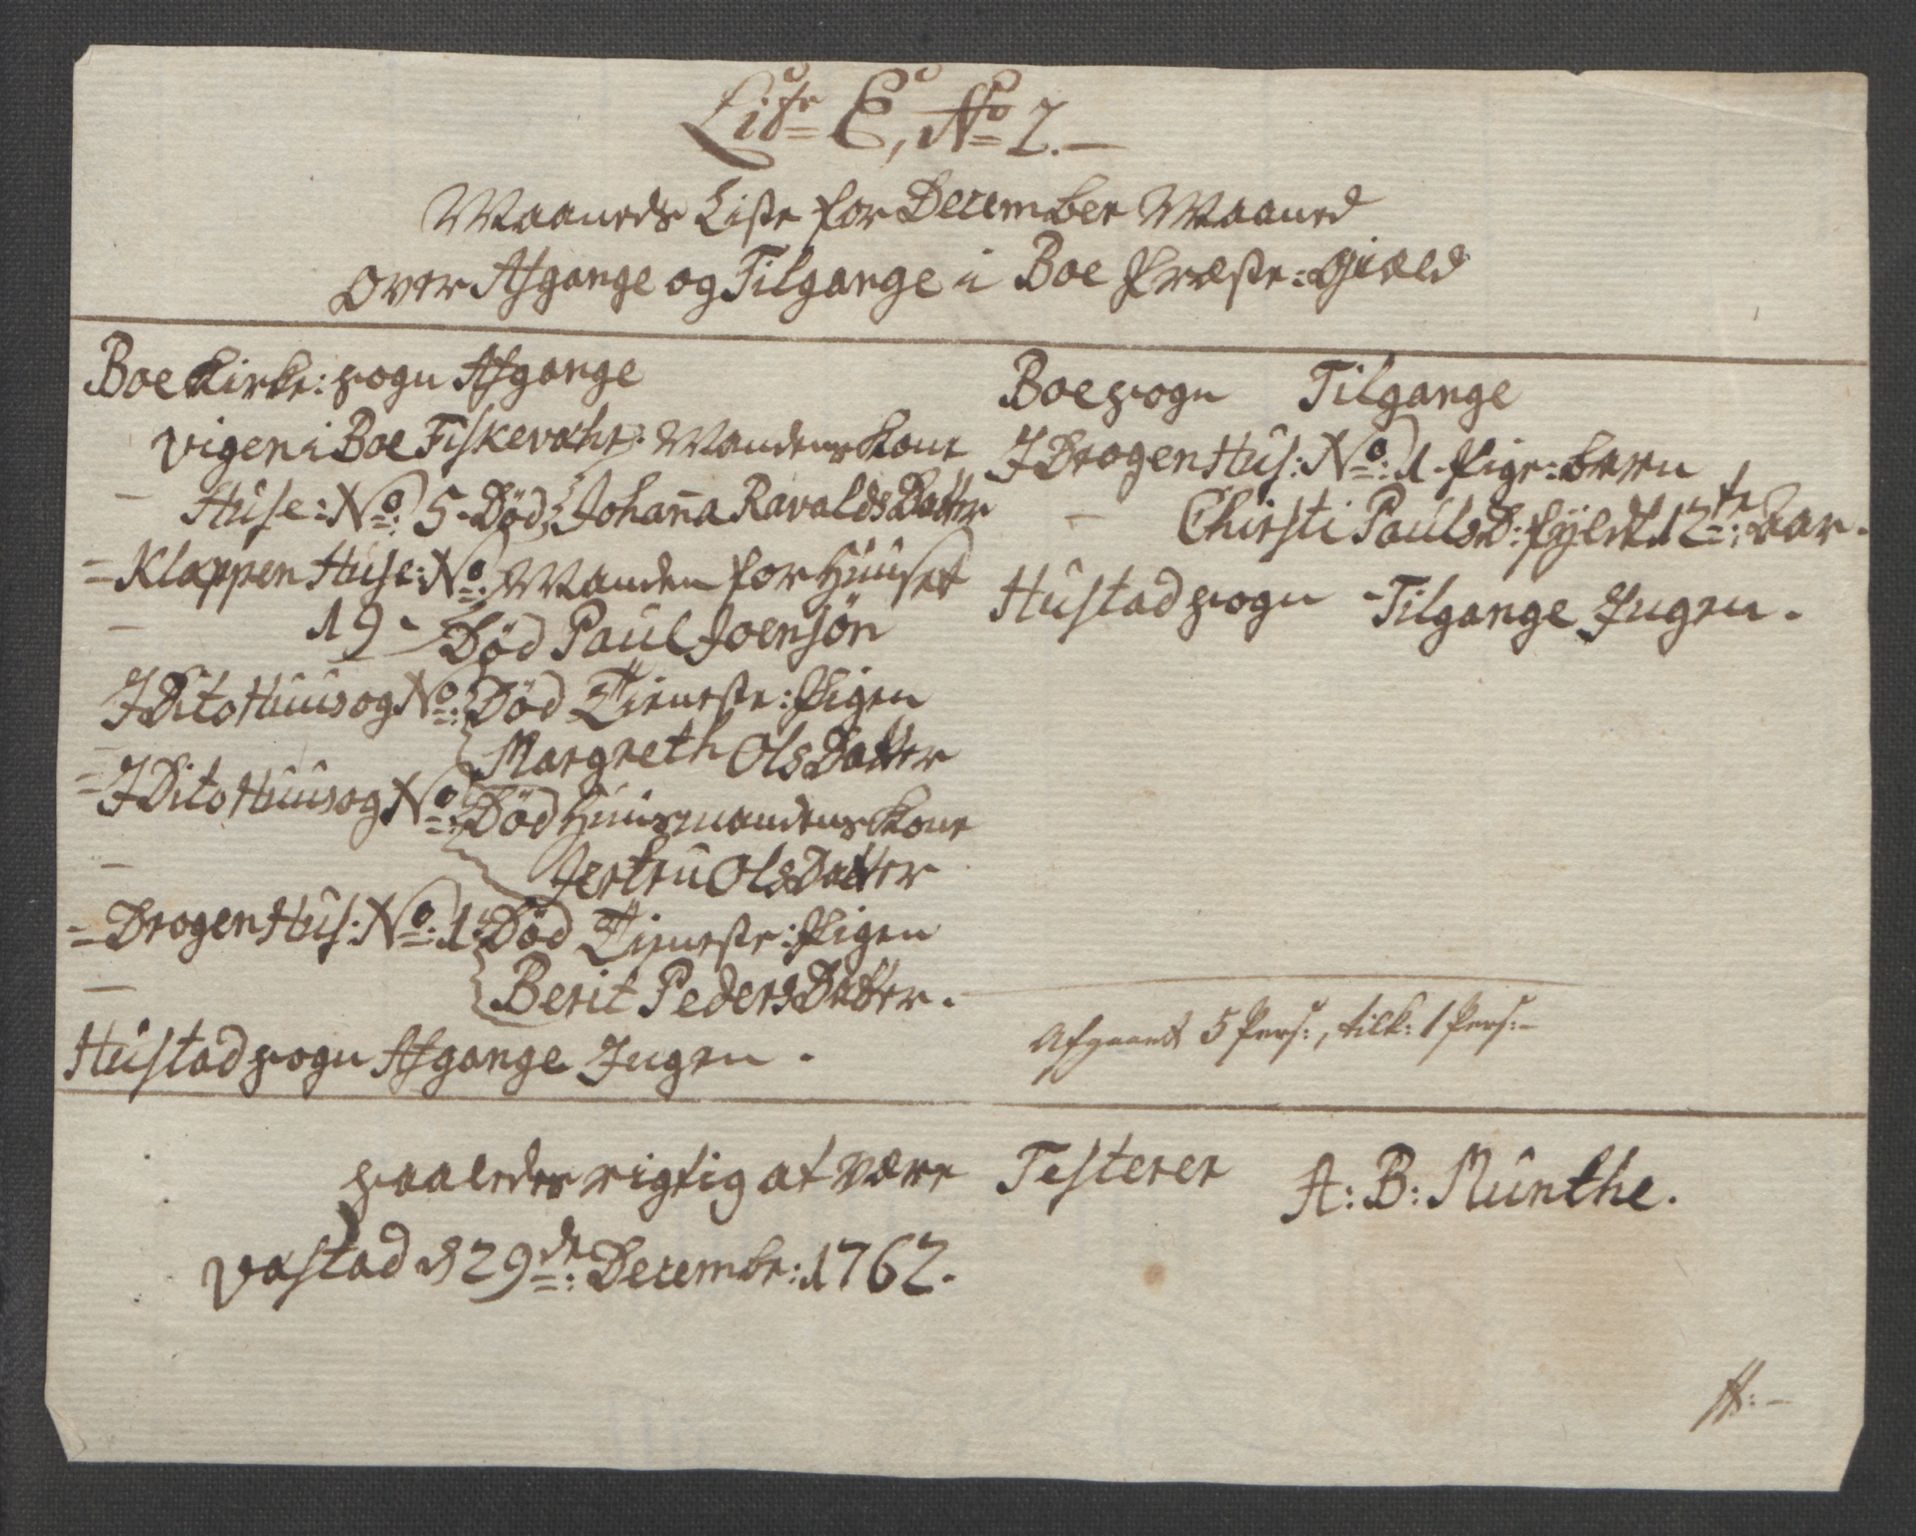 Lit: E, No 2.
Maaneds Liste for December Maaned
Over Afgange og Tilgange i Boe Præste: Gield
Boe Kirke: sogn Afgange
Vigen i Boe Fiskevahr: Mandens Kone
Huse: No: 5 - Död, Johanna RavaldsDatter
= Klappen Huse: No: Manden for Huuset
19 - Död Paul Joensön
I Dito Huus og No: Död Tieneste: Pigen
Margreth OlsDatter
= I Dito Huus og No: Död Huusmandens Kone
Jertru OlsDatter
= Drogen Hus: No: 1. Död Tieneste: Pigen
Berit PedersDatter.
Hustad sogn Afgange Ingen.
Boe sogn Tilgange
I Drogen Hus: No: 1. Pige: barn
Chirsti Pauls D: fyldt 12te: Aar.
Hustad sogn Tilgange Ingen.
Afgaaet 5 Pers:, tilk: 1 Pers:
saaledes rigtig at være Testerer A: B: Munthe.
Vastad d 29de: Decembr: 1762.